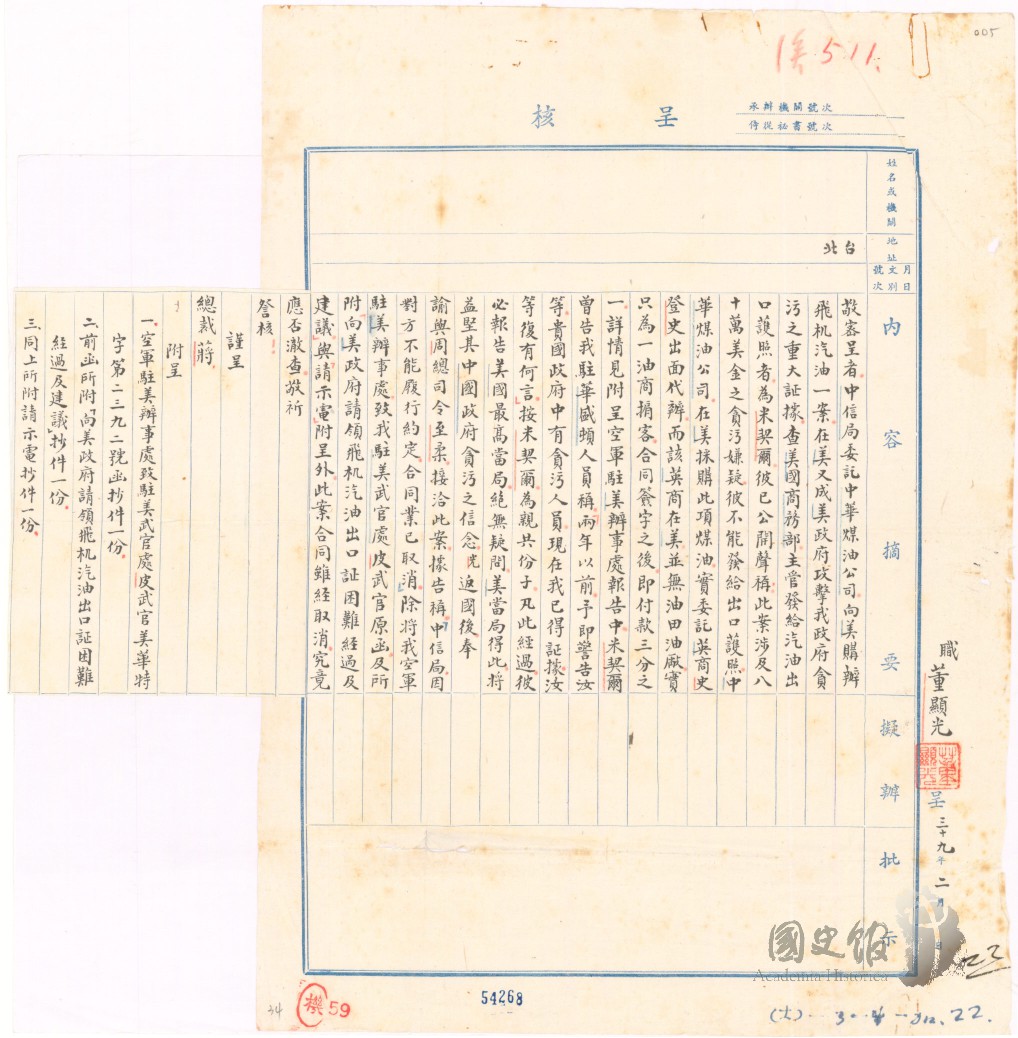 005
侯 5.11.
呈核
承辦機關號次
侍從祕書號次
姓名或機關
地址
台北
月日
文別
號次
內容摘要
擬辦
批示
職 董顯光 呈 三十九年二月 日
敬密呈者中信局委託中華煤油公司向美購辦
飛机汽油一案在美又成美政府攻擊我政府貪
污之重大証據查美國商務部主管發給汽油出
口護照者為米契爾彼已公開聲稱此案涉及八
十萬美金之貪污嫌疑彼不能發給出口護照中
華煤油公司在美採購此項煤油實委託英商史
登史出面代辦而該英商在美並無油田油廠實
只為一油商掮客合同簽字之後即付款三分之
一詳情見附呈空軍駐美辦事處報告中米契爾
曾告我駐華盛頓人員稱兩年以前予即警告汝
等貴國政府中有貪污人員現在我已得証據汝
等復有何言按米契爾為親共份子凡此經過彼
必報告美國最高當局絕無疑問美當局得此將
益堅其中國政府貪污之信念光返國後奉
諭與周總司令至柔接洽此案據告稱「中信局因
對方不能履行約定合同業已取消」除將我空軍
駐美辦事處致我駐美武官處皮武官原函及所
附「向美政府請領飛机汽油出口証困難經過及
建議」與「請示電」附呈外此案合同雖經取消究竟
應否澈查敬祈
詧核
謹呈
總裁 蔣
附呈
一、空軍駐美辦事處致駐美武官處皮武官美華特
字第二三九二號函抄件一份
二、前函所附「向美政府請領飛机汽油出口証困難
經過及建議」抄件一份
三、同上所附請示電抄件一份
董顯光
國史館
Academia Historica
34
機 59
54268
22.